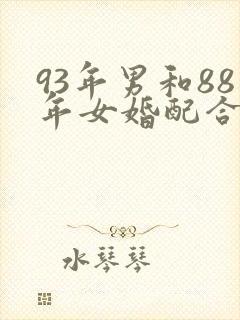 93年男和88
年女婚配合
水琴琴